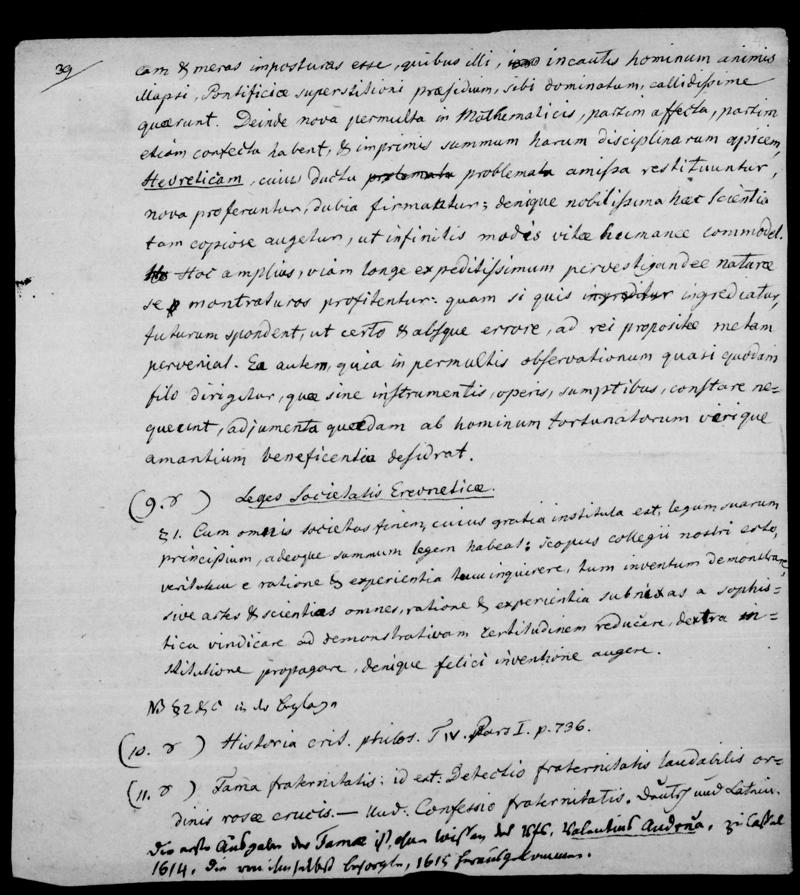 39
eam & meras imposturas esse, quibus illi, incautis hominum animis
illapsi, Pontificiæ superstitioni præsidium, sibi dominatum, callidissime
quærunt. Deinde nova permulta in Mathematicis, partim affecta, partim
etiam confecta habent, & imprimis summum harum disciplinarum apicem,
Hevreticam, cuius ductu problemata problemata amissa restituuntur,
nova proferuntur, dubia firmantur; denique nobilissima hæc Scientia
tam copiose augetur, ut infinitis modis vitæ humanæ commodet.
Hoc amplius, viam longe expeditissimum pervestigandæ naturæ
se monstraturos profitentur: quam si quis ingreditur ingrediatur,
futurum spondent, ut certo & absque errore, ad rei propositæ metam
perveniat. Ea autem, quia in permultis observationum quasi quodam
filo dirigitur, quæ sine instrumentis, operis, sumptibus, constare ne=
queunt, adjumenta quædam ab hominum fortunatorum verique
amantium beneficentia desidrat.
(9. ɤ ) Leges Societatis Erevneticæ.
§ 1. Cum omnis societas finem, cuius gratia instituta est, legum suarum
principium, adeoque summum legem habeat; scopus collegii nostri esto,
veritatem e ratione & experientia tum inquirere, tum inventum demonstrare,
sive artes & scientias omnes, ratione & experientia subnixas a sophis=
tica vindicare ad demonstrativam certitudinem reducere, dextra in=
stitutione propagare, denique felici inventione augere.
NB § 2 & c in der Beylage
(10. ɤ ) Historia crit. philos. T IV. Pars I. p. 736.
(11. ɤ ) Fama fraternitatis: id est: Detectio fraternitatis laudabilis or=
dinis roseæ crucis. — Und: Confessio fraternitatis. Deutsch und Latein.
Die erste Ausgabe der Famæ ist, ohne Wissen des Valentins Andreä, zu Cassel
1614, die von ihm selbst besorgte, 1615 herausgekommen.